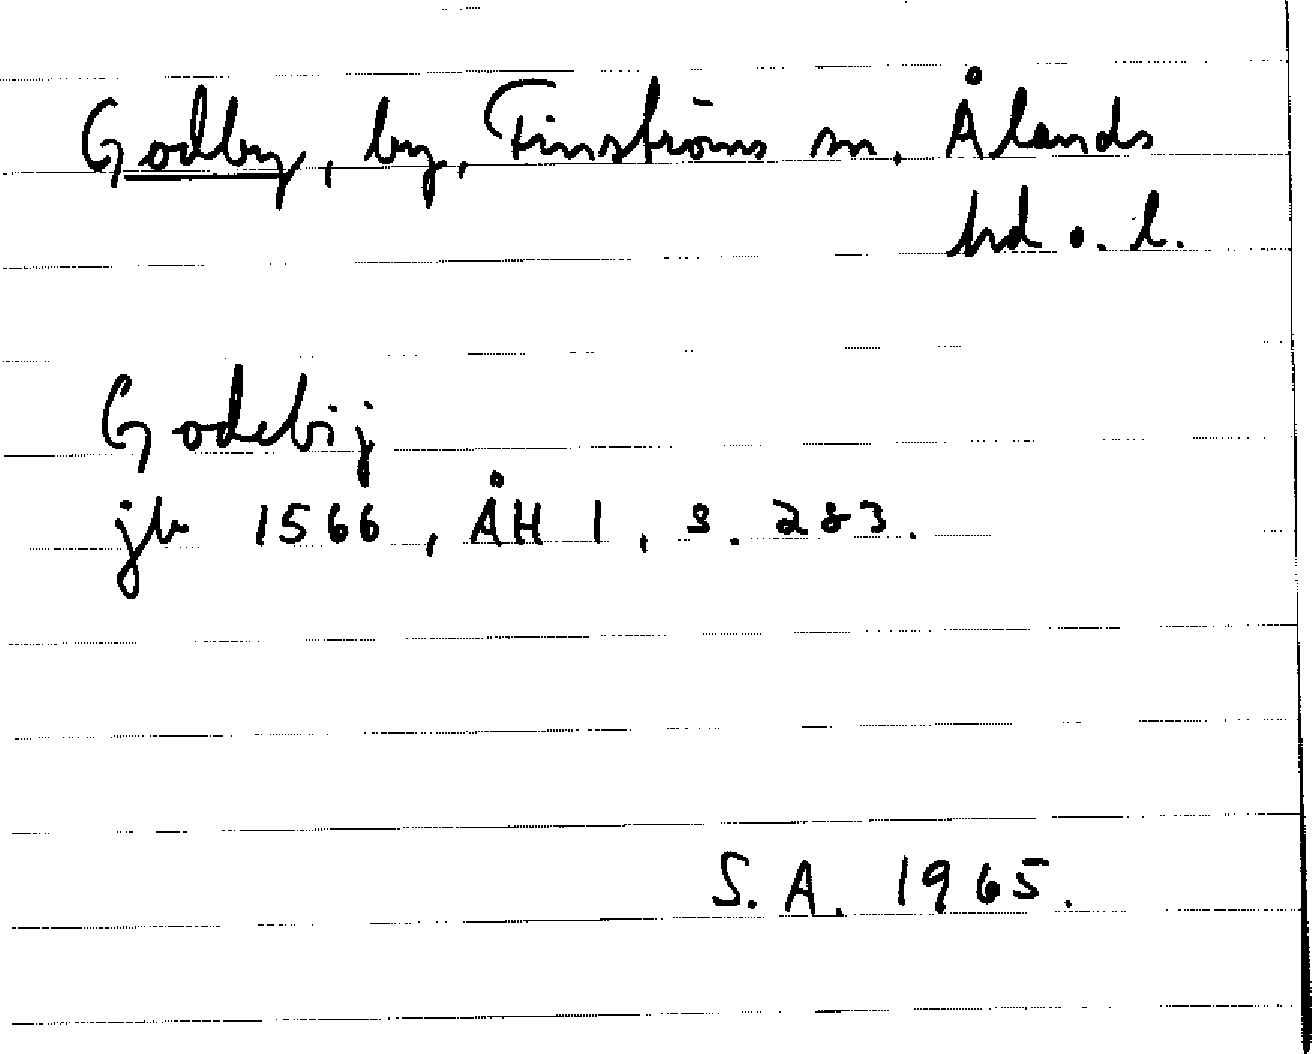 Godby, by, Finströms sn. Ålands
hd o. l.
Godebij
jb 1566, ÅH 1, s. 283.
S. A. 1965.